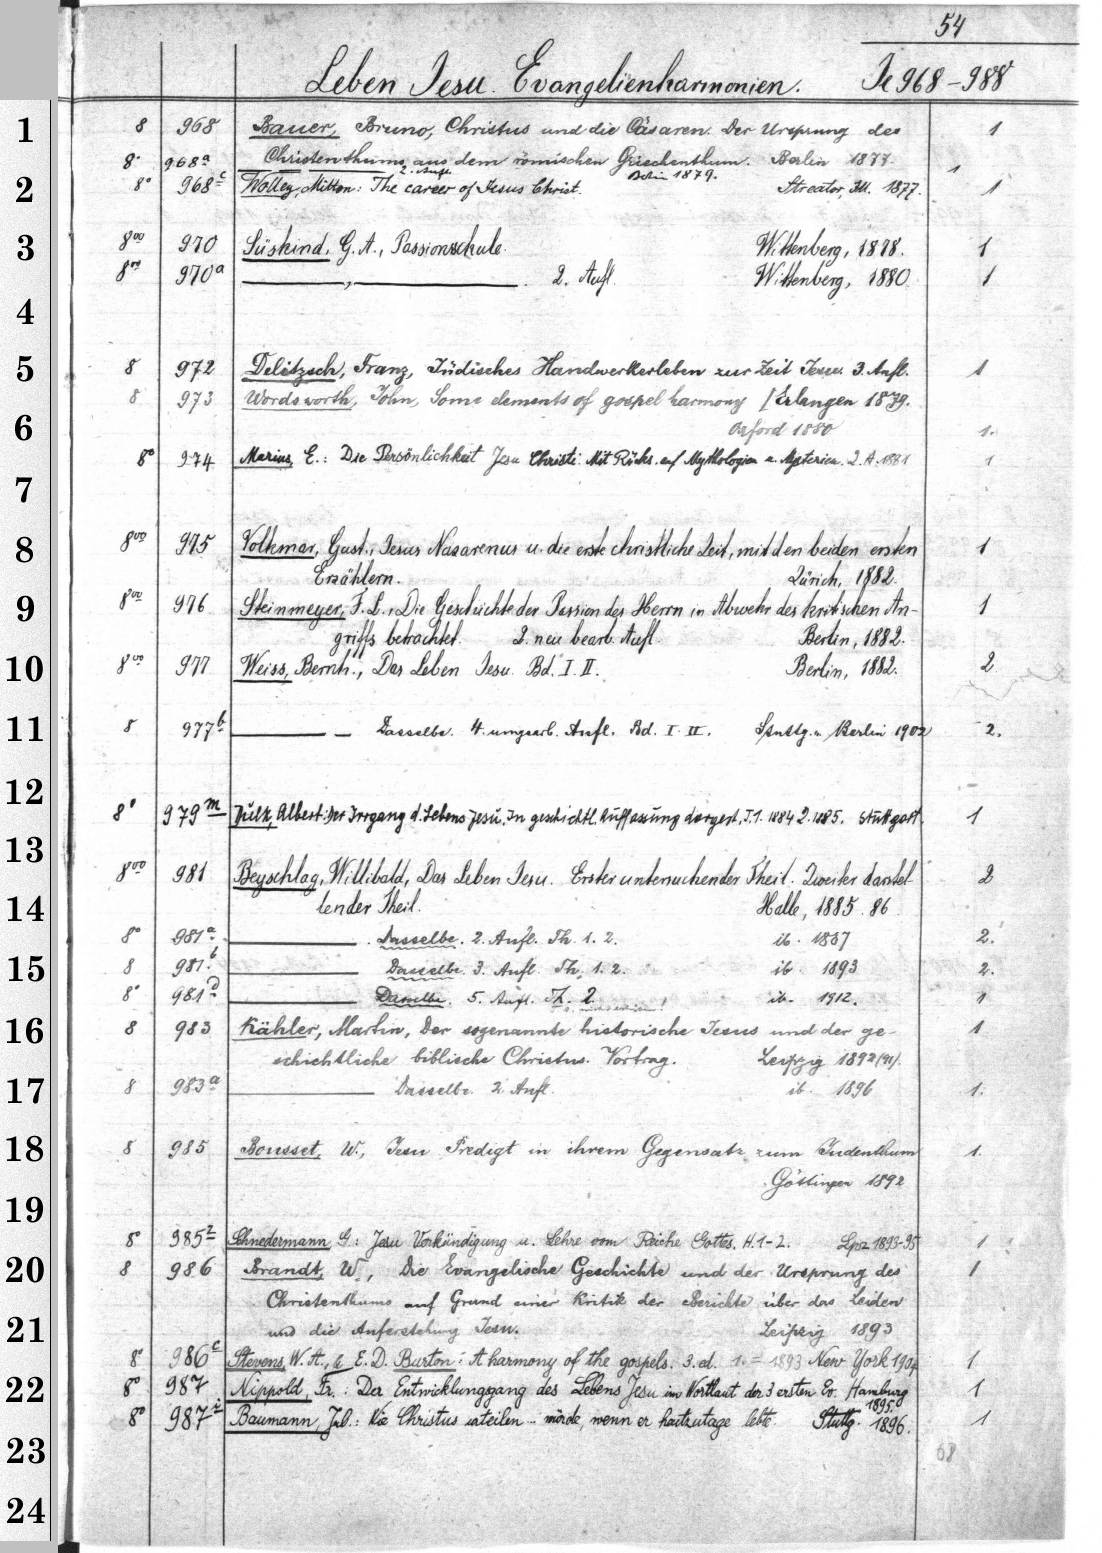 54
Leben Jesu. Evangelienharmonien. Je 968-988
1 8 968 Bauer, Bruno, Christus und die Cäsaren. Der Ursprung des 1
8° 968a Christenthums aus dem römischen Griechenthum. Berlin 1877. 1
2. Aufl. Berlin 1879.
2 8° 968c Wolley, Milton: The career of Jesus Christ. Streator, Ill. 1877. 1
3 8vo 970 Süskind, G. A., Passionsschule. Wittenberg, 1878. 1
8vo 970a ———, ———. 2. Aufl. Wittenberg, 1880. 1
4
5 8 972 Delitzsch, Franz, Jüdisches Handwerkerleben zur Zeit Jesu. 3. Aufl. 1
8 973 Wordsworth, John, Some elements of gospel harmony [Erlangen 1879.
6 Oxford 1880 1.
8° 974 Marius, E.: Die Persönlichkeit Jesu Christi Mit Rücks. auf Mythologien u. Mysterien. 2. A. 1881 1
7
8 8vo 975 Volkmar, Gust., Jesus Nazarenus u. die erste christliche Zeit, mit den beiden ersten 1
Erzählern. Zürich, 1882.
9 8vo 976 Steinmeyer, F. L., Die Geschichte der Passion des Herrn in Abwehr des kritischen An- 1
griffs betrachtet. 2. neu bearb. Aufl. Berlin, 1882.
10 8vo 977 Weiss, Bernh., Das Leben Jesu. Bd. I. II. Berlin, 1882. 2
11 8 977b ——— — Dasselbe. 4. umgearb. Aufl. Bd. I. II. Stuttg. u. Berlin 1902 2.
12
8° 979m Dulk, Albert: Der Irrgang d. Lebens Jesu. In geschichtl. Auffassung dargest. T. 1. 1884 2. 1885. Stuttgart. 1
13
8vo 981 Beyschlag, Willibald, Das Leben Jesu. Erster untersuchender Theil. Zweiter darstel- 2
14 lender Theil. Halle, 1885. 86
8° 981a ———. Dasselbe. 2. Aufl. Th. 1. 2. ib. 1887 2.
15 8 981b ——— Dasselbe. 3. Aufl. Th. 1. 2. ib. 1893 2.
8° 981d ——— Dasselbe. 5. Aufl. Th. 2. ib. 1912. 1
16 8 983 Kähler, Martin, Der sogenannte historische Jesus und der ge- 1
schichtliche biblische Christus. Vortrag. Leipzig 1892
17 8 983a ——— Dasselbe. 2. Aufl. ib. 1896 1.
18 8 985 Bousset, W., Jesu Predigt in ihrem Gegensatz zum Judenthum 1.
Göttingen 1892
19
8° 985z Schnedermann G: Jesu Verkündigung u. Lehre vom Reiche Gottes. H. 1-2. Lpz 1893-95 1
20 8 986 Brandt, W., Die Evangelische Geschichte und der Ursprung des 1
Christenthums auf Grund einer Kritik der Berichte über das Leiden
21 und die Auferstehung Jesu. Leipzig 1893
8° 986c Stevens, W. A., & E. D. Burton: A harmony of the gospels. 3. ed. 1. = 1893 New York 1904 1.
22 8° 987 Nippold, Fr.: Der Entwicklungsgang des Lebens Jesu im Wortlaut der 3 ersten Ev. Hamburg 1
1895.
8° 987i Baumann, Jul.: Wie Christus urteilen .. würde, wenn er heutzutage lebte. Stuttg. 1896. 1
23 68
24